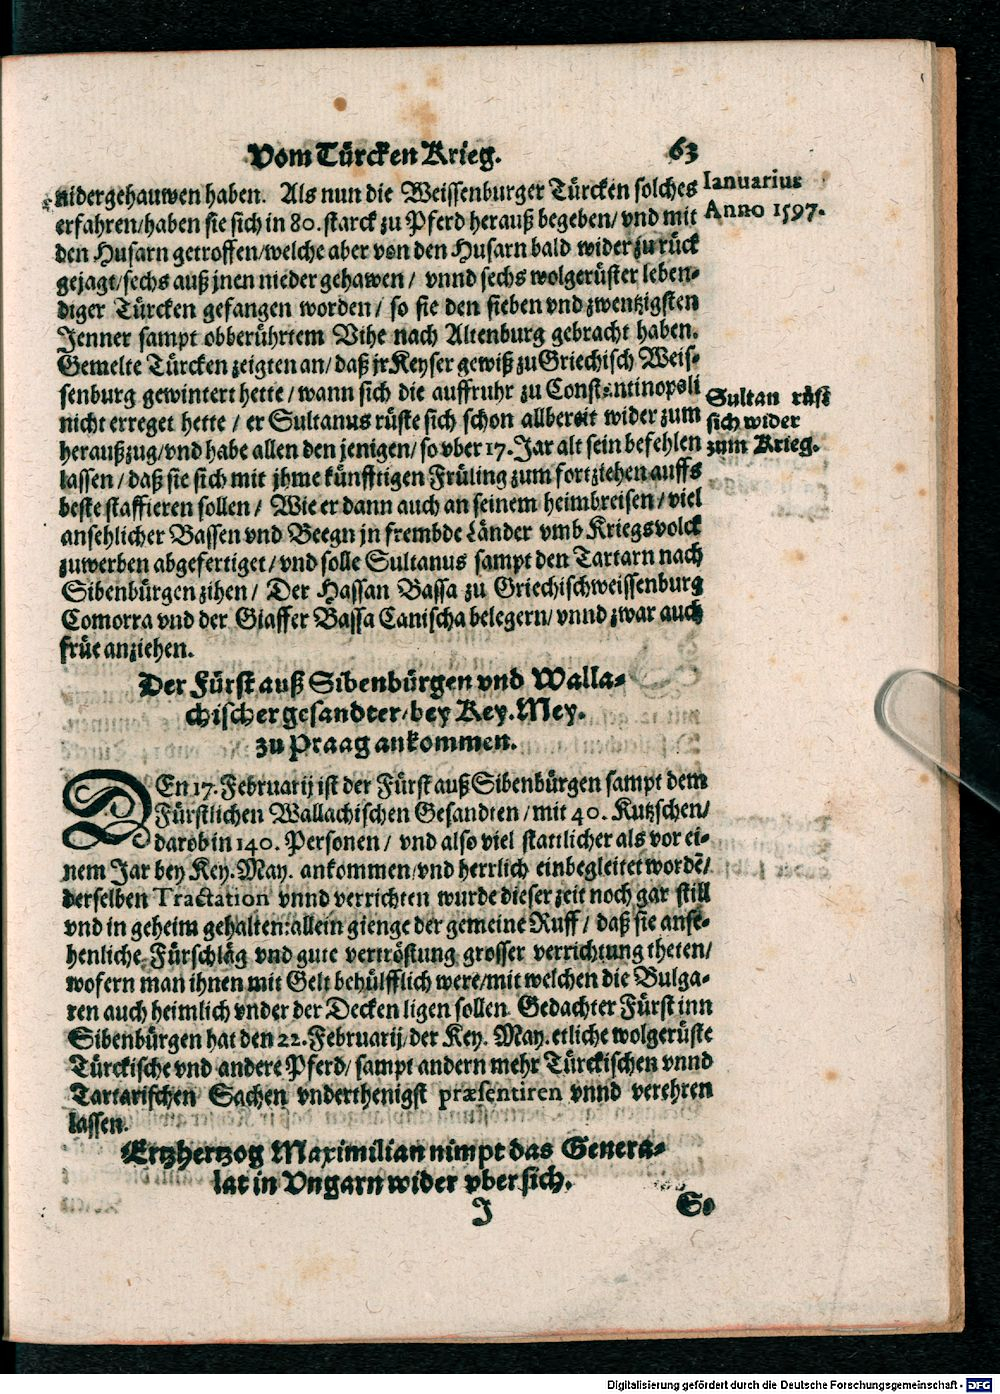 Vom Türcken Krieg. 63
nidergehauwen haben. Als nun die Weissenburger Türcken solches
Ianuarius
Anno 1597.
erfahren/haben sie sich in 80. starck zu Pferd herauß begeben/ vnd mit
den Husarn getroffen/welche aber von den Husarn bald wider zu rück
gejagt/sechs auß jnen nieder gehawen / vnnd sechs wolgerüster leben-
diger Türcken gefangen worden / so sie den sieben vnd zwentzigsten
Jenner sampt obberührtem Vihe nach Altenburg gebracht haben.
Gemelte Türcken zeigten an/ daß jr Keyser gewiß zu Griechisch Weis-
senburg gewintert hette / wann sich die auffruhr zu Constantinopoli
nicht erreget hette / er Sultanus rüste sich schon allbereit wider zum
heraußzug/vnd habe allen den jenigen/ so vber 17. Jar alt sein befehlen
Sultan rüst
sich wider
zum Krieg.
lassen / daß sie sich mit jhme künfftigen Früling zum fortziehen auffs
beste staffieren sollen / Wie er dann auch an seinem heimbreisen / viel
ansehlicher Bassen vnd Beegn jn frembde Länder vmb Kriegsvolck
zuwerben abgefertiget / vnd solle Sultanus sampt den Tartarn nach
Sibenbürgen zihen / Der Hassan Bassa zu Griechischweissenburg
Comorra vnd der Giaffer Bassa Canischa belegern/ vnnd zwar auch
früe anziehen.
Der Fürst auß Sibenbürgen vnd Walla-
chischer gesandter/bey Key. Mey.
zu Praag ankommen.
DEn 17. Februarij ist der Fürst auß Sibenbürgen sampt dem
Fürstlichen Wallachischen Gesandten / mit 40. Kutzschen/
darobin 140. Personen / vnd also viel stattlicher als vor ei-
nem Jar bey Key. May. ankommen/vnd herrlich einbegleitet wordē/
derselben Tractation vnnd verrichten wurde dieser zeit noch gar still
vnd in geheim gehalten: allein gienge der gemeine Ruff / daß sie anse-
henliche Fürschläg vnd gute vertröstung grosser verrichtung theten/
wofern man ihnen mit Gelt behülfflich were/mit welchen die Bulga-
ren auch heimlich vnder der Decken ligen sollen. Gedachter Fürst inn
Sibenbürgen hat den 22. Februarij der Key. May. etliche wolgerüste
Türckische vnd andere Pferd/ sampt andern mehr Türckischen vnnd
Tartarischen Sachen vnderthenigst præsentiren vnnd verehren
lassen.
Ertzhertzog Maximilian nimpt das Genera-
lat in Vngarn wider vber sich.
J So
Digitalisierung gefördert durch die Deutsche Forschungsgemeinschaft - DFG